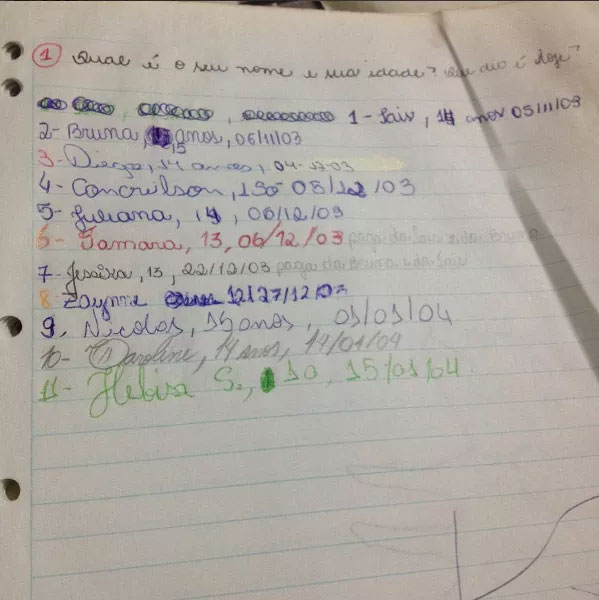 1 Qual é o seu nome e sua idade? Que dia é hoje?
1 - Lais, 14 anos 05/11/03
2- Bruna, 15 anos, 06/11/03
3- Diego, 14 anos, 04-12-03
4- , 08/12/03
5- Juliana, 14, 06/12/03
6- Tamara, 13, 06/12/03 paga da Lais e da Bruna
7- Jessica, 13, 22/12/03 paga da Bruna e da Lais
8- 12/27/12/03
9. Nicolas, 15 anos, 01/01/04
10- Caroline, 14 anos, 14/01/04
11- S., 10, 15/01/04.